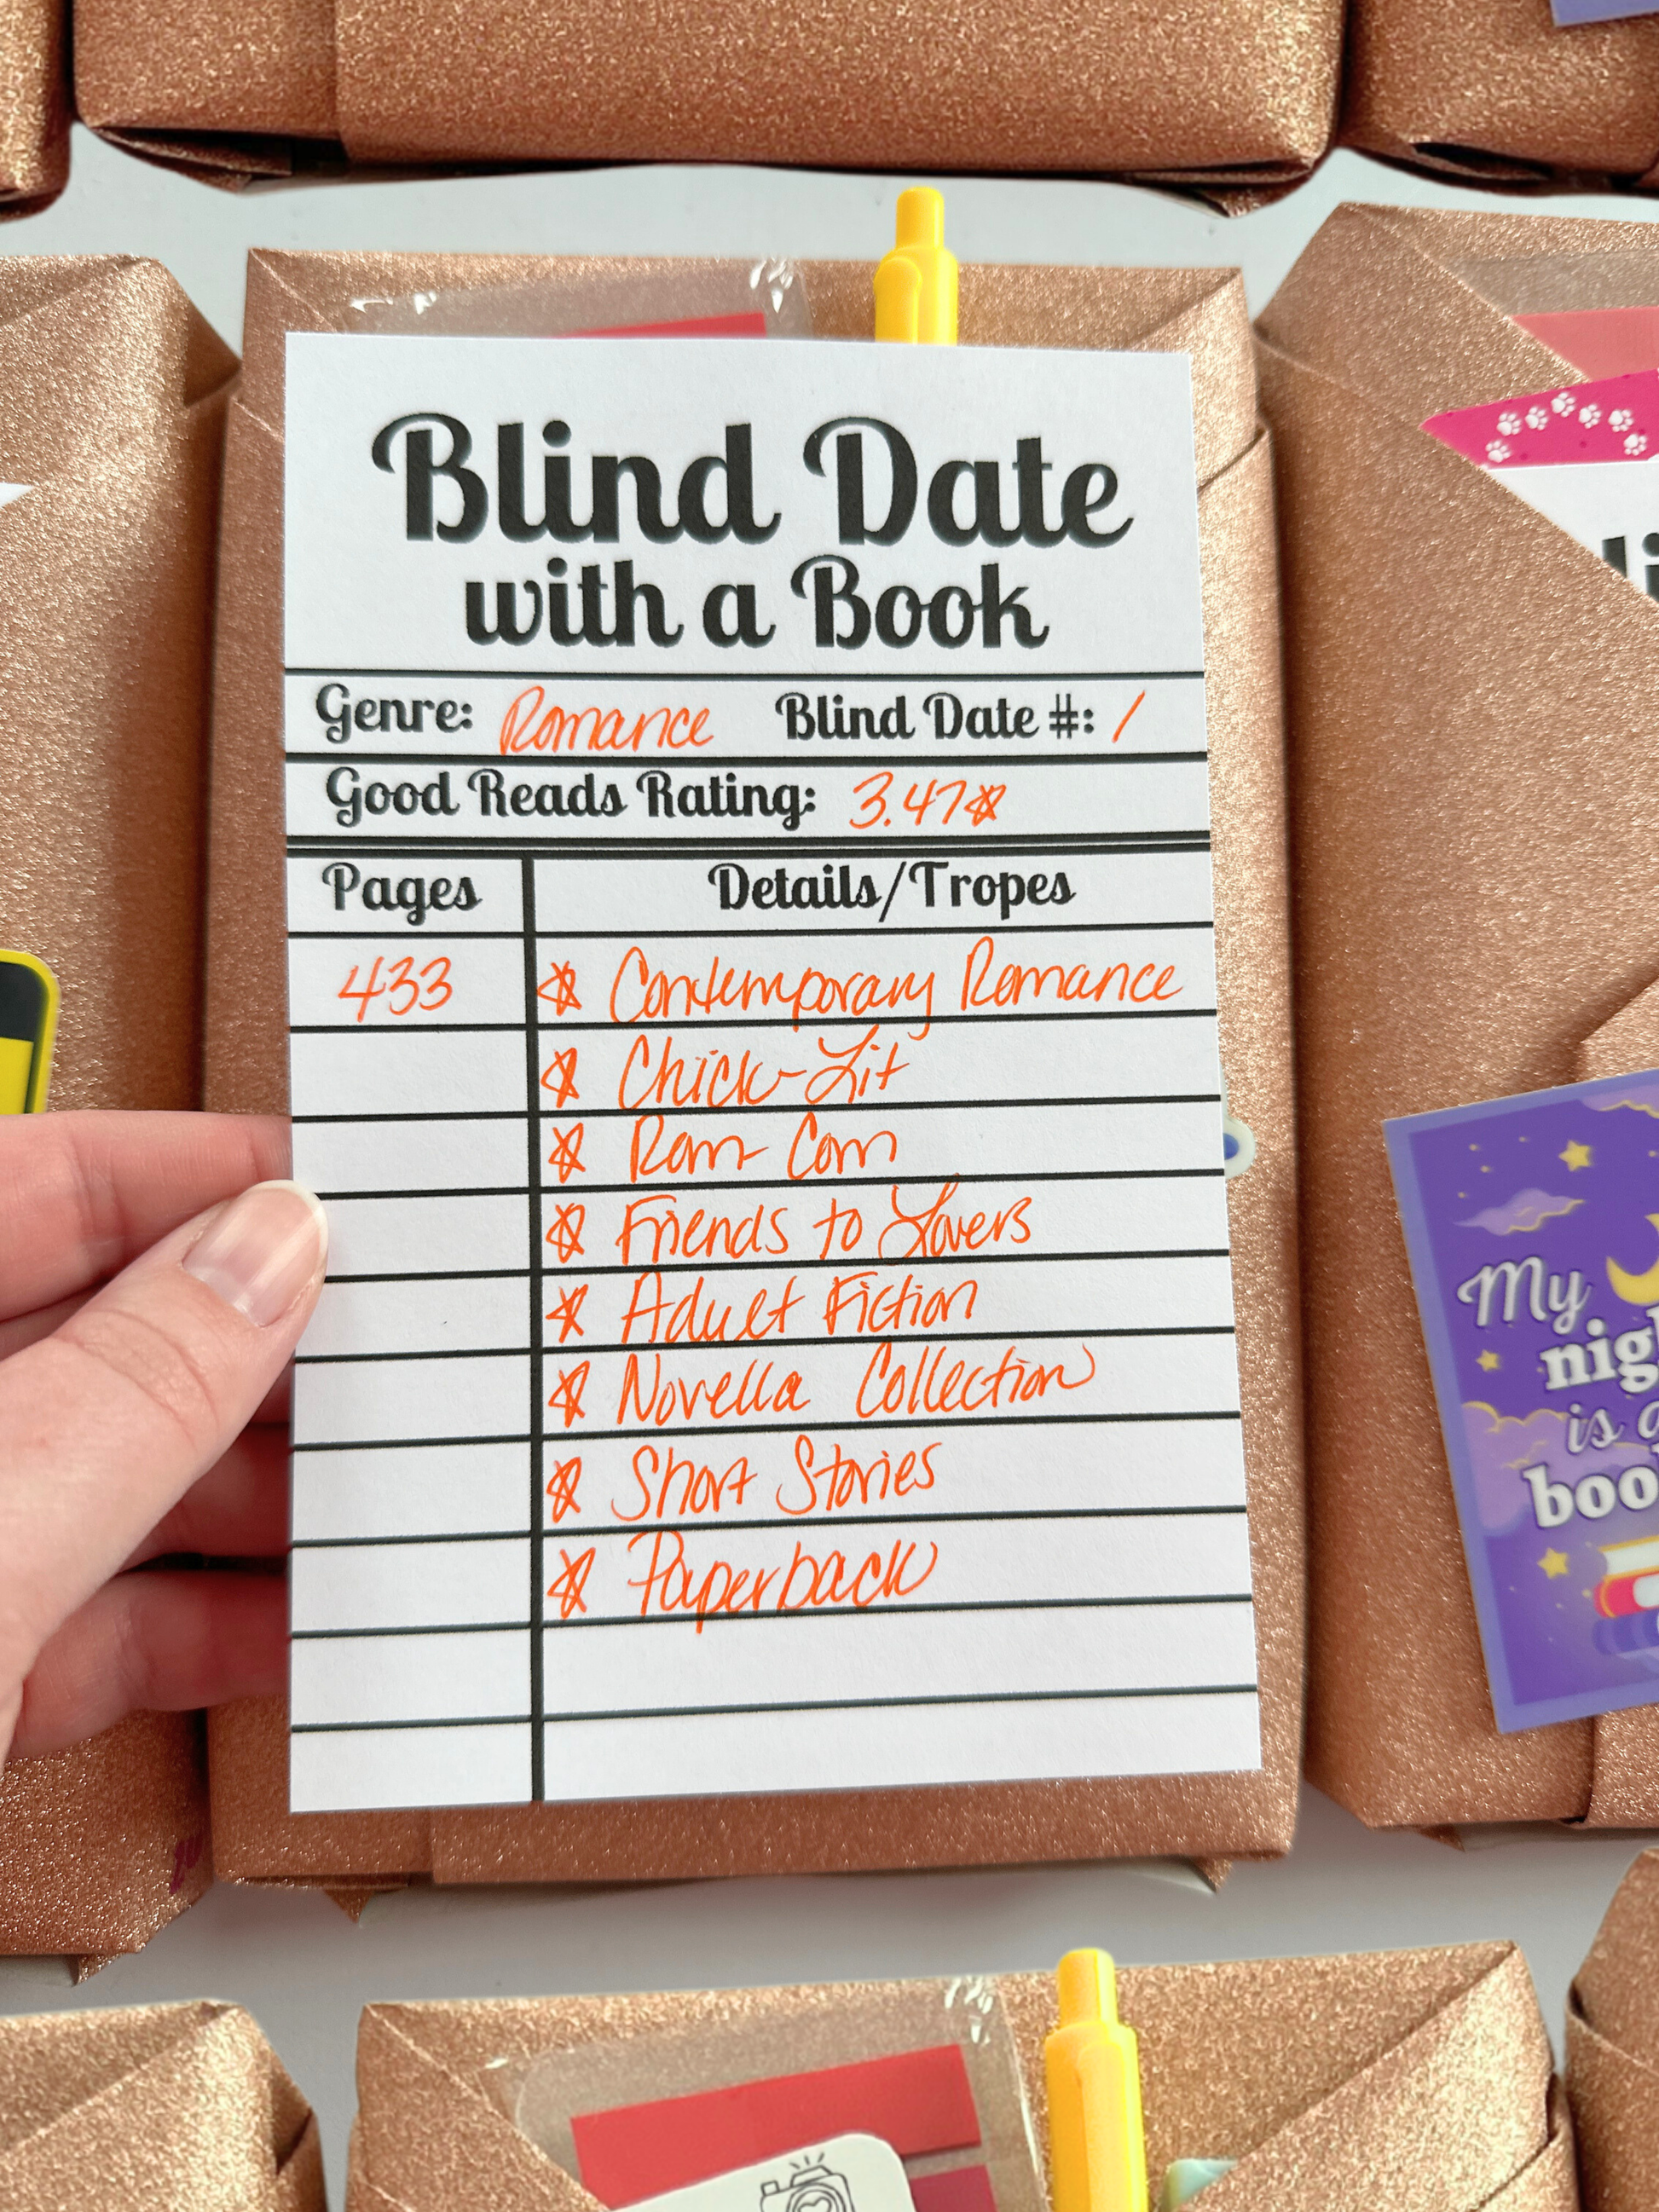 Blind Date
with a Book
Genre: Romance Blind Date #: 1
Good Reads Rating: 3.47☆
Pages Details/Tropes
433 ☆ Contemporary Romance
☆ Chick-Lit
☆ Rom-Com
☆ Friends to Lovers
☆ Adult Fiction
☆ Novella Collection
☆ Short Stories
☆ Paperback
My
is